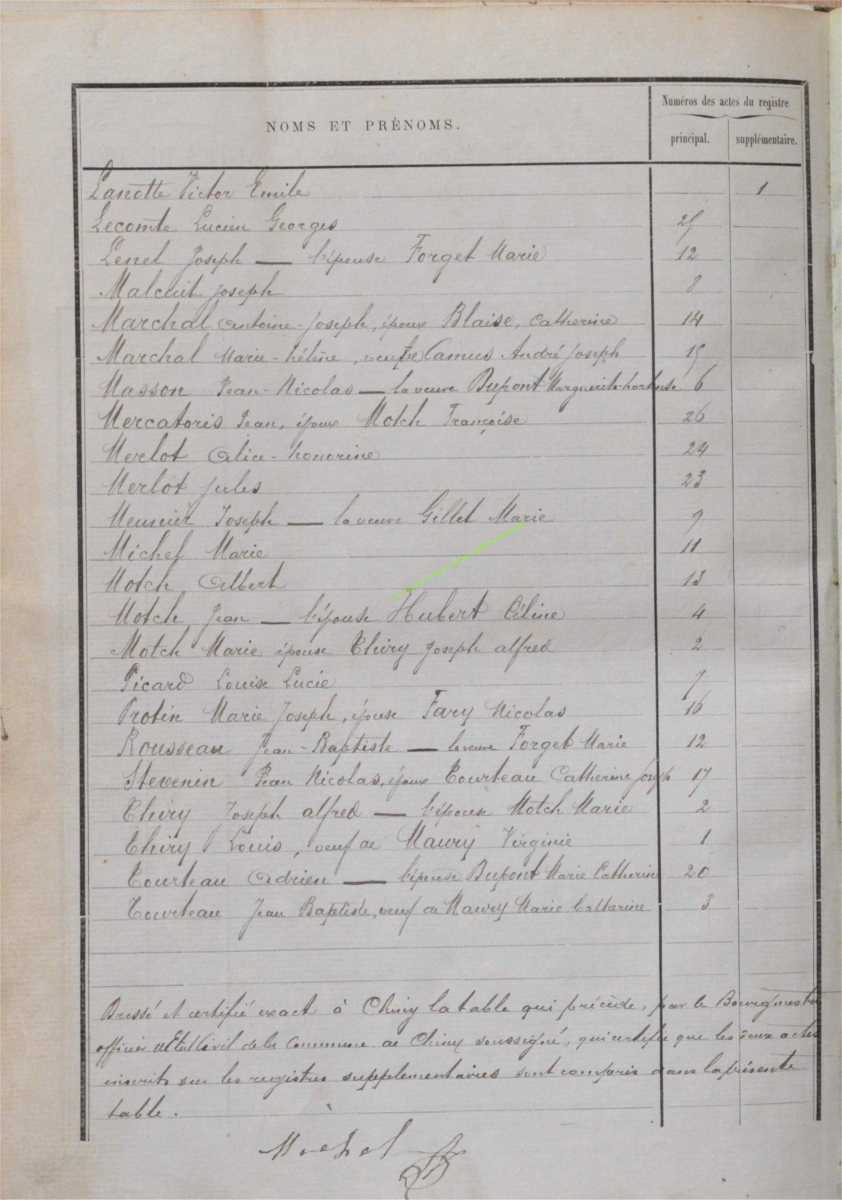 NOMS ET PRÉNOMS.
Numéros des actes du registre
principal. supplémentaire.
Lanotte Victor Emile 1
Lecomte Lucien Georges 25
Lenel Joseph — l'épouse Forget Marie 12
Malcuit Joseph 8
Marchal Antoine-Joseph, époux Blaise, Catherine 14
Marchal Marie-hélène, veuve Camus André Joseph 15
Masson Jean-Nicolas — la veuve Dupont Marguerite-hortense 6
Mercatoris Jean, époux Motch Françoise 26
Merlot Alice-honorine 24
Merlot Jules 23
Meunier Joseph — la veuve Gillet Marie 9
Michel Marie 11
Motch Albert 13
Motch Jean — l'épouse Hubert Céline 4
Motch Marie épouse Thiry Joseph alfred 2
Picard Louise Lucie 7
Protin Marie Joseph, épouse Fary Nicolas 16
Rousseau Jean-Baptiste — la veuve Forget Marie 12
Stevenin Jean Nicolas, époux Tourteau Catherine Joseph 17
Thiry Joseph alfred — l'épouse Motch Marie 2
Thiry Louis, veuf de Maury Virginie 1
Tourteau Adrien — l'épouse Dupont Marie Catherine 20
Tourteau Jean Baptiste, veuf de Maury Marie Catherine 3
Dressé et certifié exact à Chiny la table qui précède, par le Bourgmestre
officier de l'Etat Civil de la Commune de Chiny soussigné, qui certifie que les deux actes
inscrits sur les registres supplémentaires sont compris dans la présente
table.